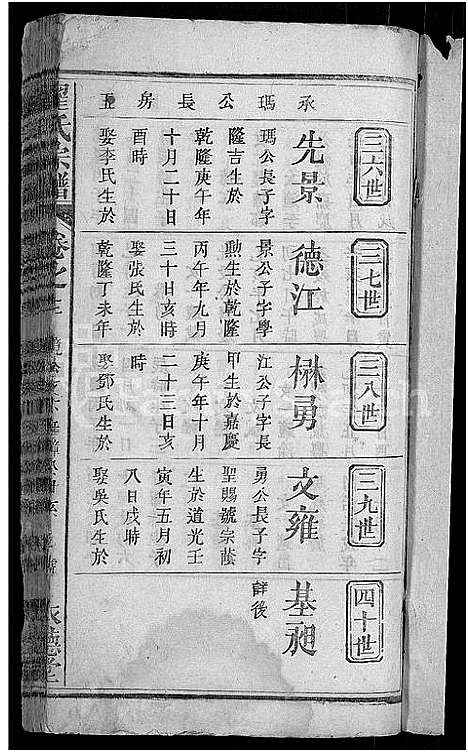 承瑪公長房
三六世
先景
瑪公長子字
隆吉生於
乾隆庚午年
十月二十日
酉時
娶李氏生於
三七世
德江
景公子字學
勲生於乾隆
丙午年九月
三十日亥時
娶張氏生於
乾隆丁未年
三八世
楙勇
江公子字長
甲生於嘉慶
庚午年十月
二十三日亥
時
娶鄧氏生於
三九世
文雍
勇公長子字
聖賜號宗蔭
生於道光壬
寅年五月初
八日戌時
娶吳氏生於
四十世
基昶
詳後
氏宗譜
卷之三